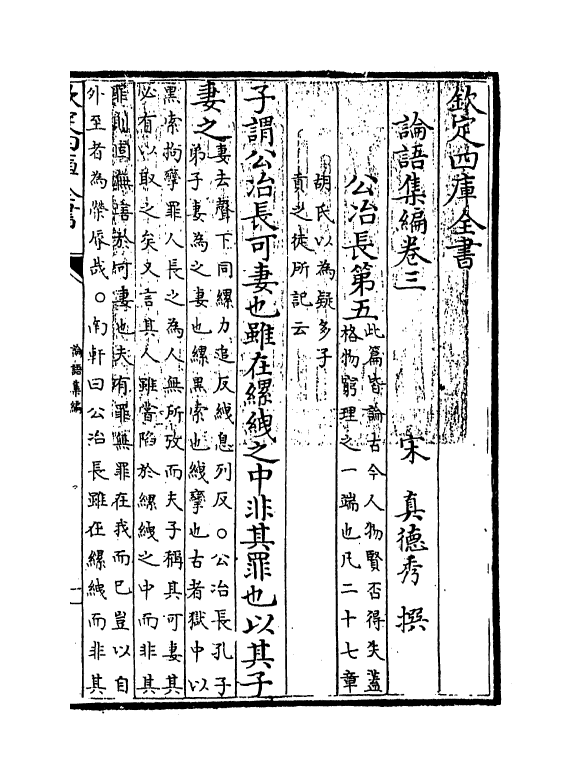 欽定四庫全書
論語集編卷三
宋　真德秀　撰
公冶長第五
此篇皆論古今人物賢否得失蓋
格物窮理之一端也凡二十七章
胡氏以為疑多子
貢之徒所記云
子謂公冶長可妻也雖在縲絏之中非其罪也以其子
妻之
妻去聲下同縲力追反絏息列反○公冶長孔子
弟子妻為之妻也縲黑索也絏攣也古者獄中以
黑索拘攣罪人長之為人無所攷而夫子稱其可妻其
必有以取之矣又言其人雖嘗陷於縲絏之中而非其
罪則固無害於可妻也夫有罪無罪在我而已豈以自
外至者為榮辱哉○南軒曰公冶長雖在縲絏而非其
欽定四庫全書
論語集編
一